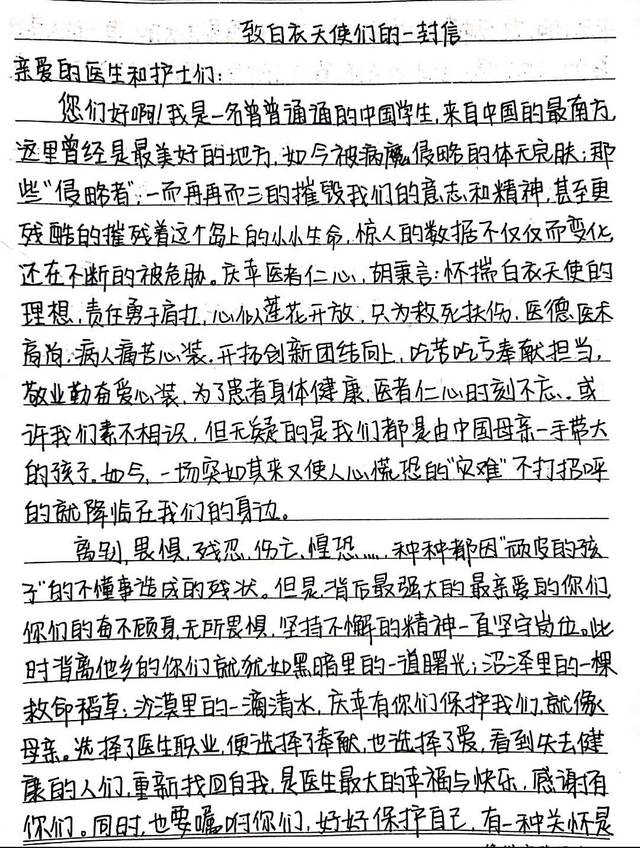 致白衣天使们的一封信
亲爱的医生和护士们：
您们好啊！我是一名普普通通的中国学生，来自中国的最南方，
这里曾经是最美好的地方，如今被病魔侵略的体无完肤；那
些“侵略者”，一而再再而三的摧毁我们的意志和精神，甚至更
残酷的摧残着这个岛上的小小生命，惊人的数据不仅仅而变化，
还在不断的被危胁。庆幸医者仁心，胡秉言：怀揣白衣天使的
理想，责任勇于肩扛，心似莲花开放，只为救死扶伤，医德医术
高尚，病人痛苦心装，开拓创新团结向上，吃苦吃亏奉献担当，
敬业勤奋爱心装，为了患者身体健康，医者仁心时刻不忘。或
许我们素不相识，但无疑的是我们都是由中国母亲一手带大
的孩子。如今，一场突如其来又使人心慌恐的“灾难”不打招呼
的就降临在我们的身边。
离别，畏惧，残忍，伤亡，惶恐……种种都因“顽皮的孩
子”的不懂事造成的残状。但是，背后最强大的最亲爱的你们，
你们的奋不顾身，无所畏惧，坚持不懈的精神一直坚守岗位。此
时背离他乡的你们就犹如黑暗里的一道曙光；沼泽里的一棵
救命稻草；沙漠里的一滴清水，庆幸有你们保护我们，就像
母亲。选择了医生职业，便选择了奉献，也选择了爱，看到失去健
康的人们，重新找回自我，是医生最大的幸福与快乐，感谢有
你们。同时，也要嘱咐你们，好好保护自己，有一种关怀是